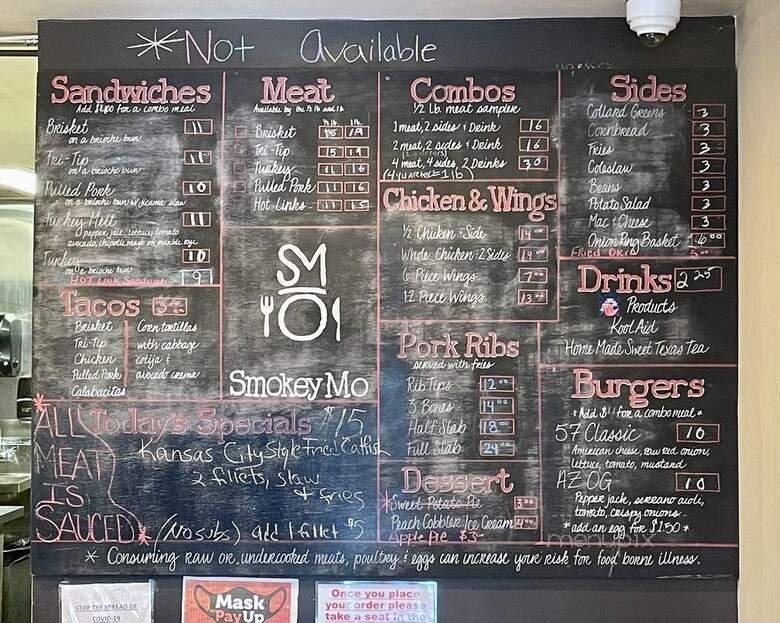 *Not Available
Sandwiches
for a combo meal
Brisket 11
on a brioche bun
Tri-Tip 11
on a brioche bun
Pulled Pork 10
on a brioche bun w/ jicama slaw
Turkey Melt 11
pepper jack, lettuce, tomato
avocado, chipotle mayo on marble rye
Turkey 10
on a brioche bun
HOT Link Sandwich 9
Tacos
Brisket
Tri-Tip
Chicken
Pulled Pork
Calabacitas
Corn tortillas
with cabbage
cotija &
avocado crema
Meat
Available by the ½ lb and 1 lb
½ lb 1 lb
Brisket 19
Tri-Tip 15 19
Turkey 11 16
Pulled Pork 11 16
Hot Links 11 15
SM
Smokey Mo
Combos
½ Lb. meat sampler
1 meat, 2 sides & Drink 16
2 meat, 2 sides & Drink 16
4 meat, 4 sides, 2 Drinks 30
(4 QUARTERS 1 lb)
Chicken & Wings
½ Chicken & Side 14.00
Whole Chicken & 2 Sides
6 Piece Wings 7.00
12 Piece Wings 13.00
Pork Ribs
served with fries
Rib Tips 12.00
3 Bones 14.00
Half Slab 18.00
Full Slab 24.00
Dessert
*Sweet Potato Pie
Peach Cobbler/Ice Cream
Apple Pie $3-
Sides
Collard Greens 3
Cornbread 3
Fries 3
Coleslaw 3
Beans 3
Potato Salad 3
Mac & Cheese 3
Onion Ring Basket 6.00
Fried Okra
Drinks 2 25
Products
Kool Aid
Home Made Sweet Texas Tea
Burgers
*Add $4 for a combo meal*
57 Classic 10
American cheese, raw red onion,
lettuce, tomato, mustard
AZ OG 10
Pepper jack, serrano aioli,
tomato, crispy onions.
*add an egg for $1.50*
*ALL
MEAT
IS
SAUCED*
Today's Specials $15
Kansas City Style Fried Catfish
2 fillets, slaw
& fries
(No subs) add 1 fillet $5
* Consuming raw or undercooked meats, poultry & eggs can increase your risk for food borne illness.
menupix
STOP THE SPREAD OF
COVID-19
Mask
PayUp
Once you place
your order please
take a seat in the